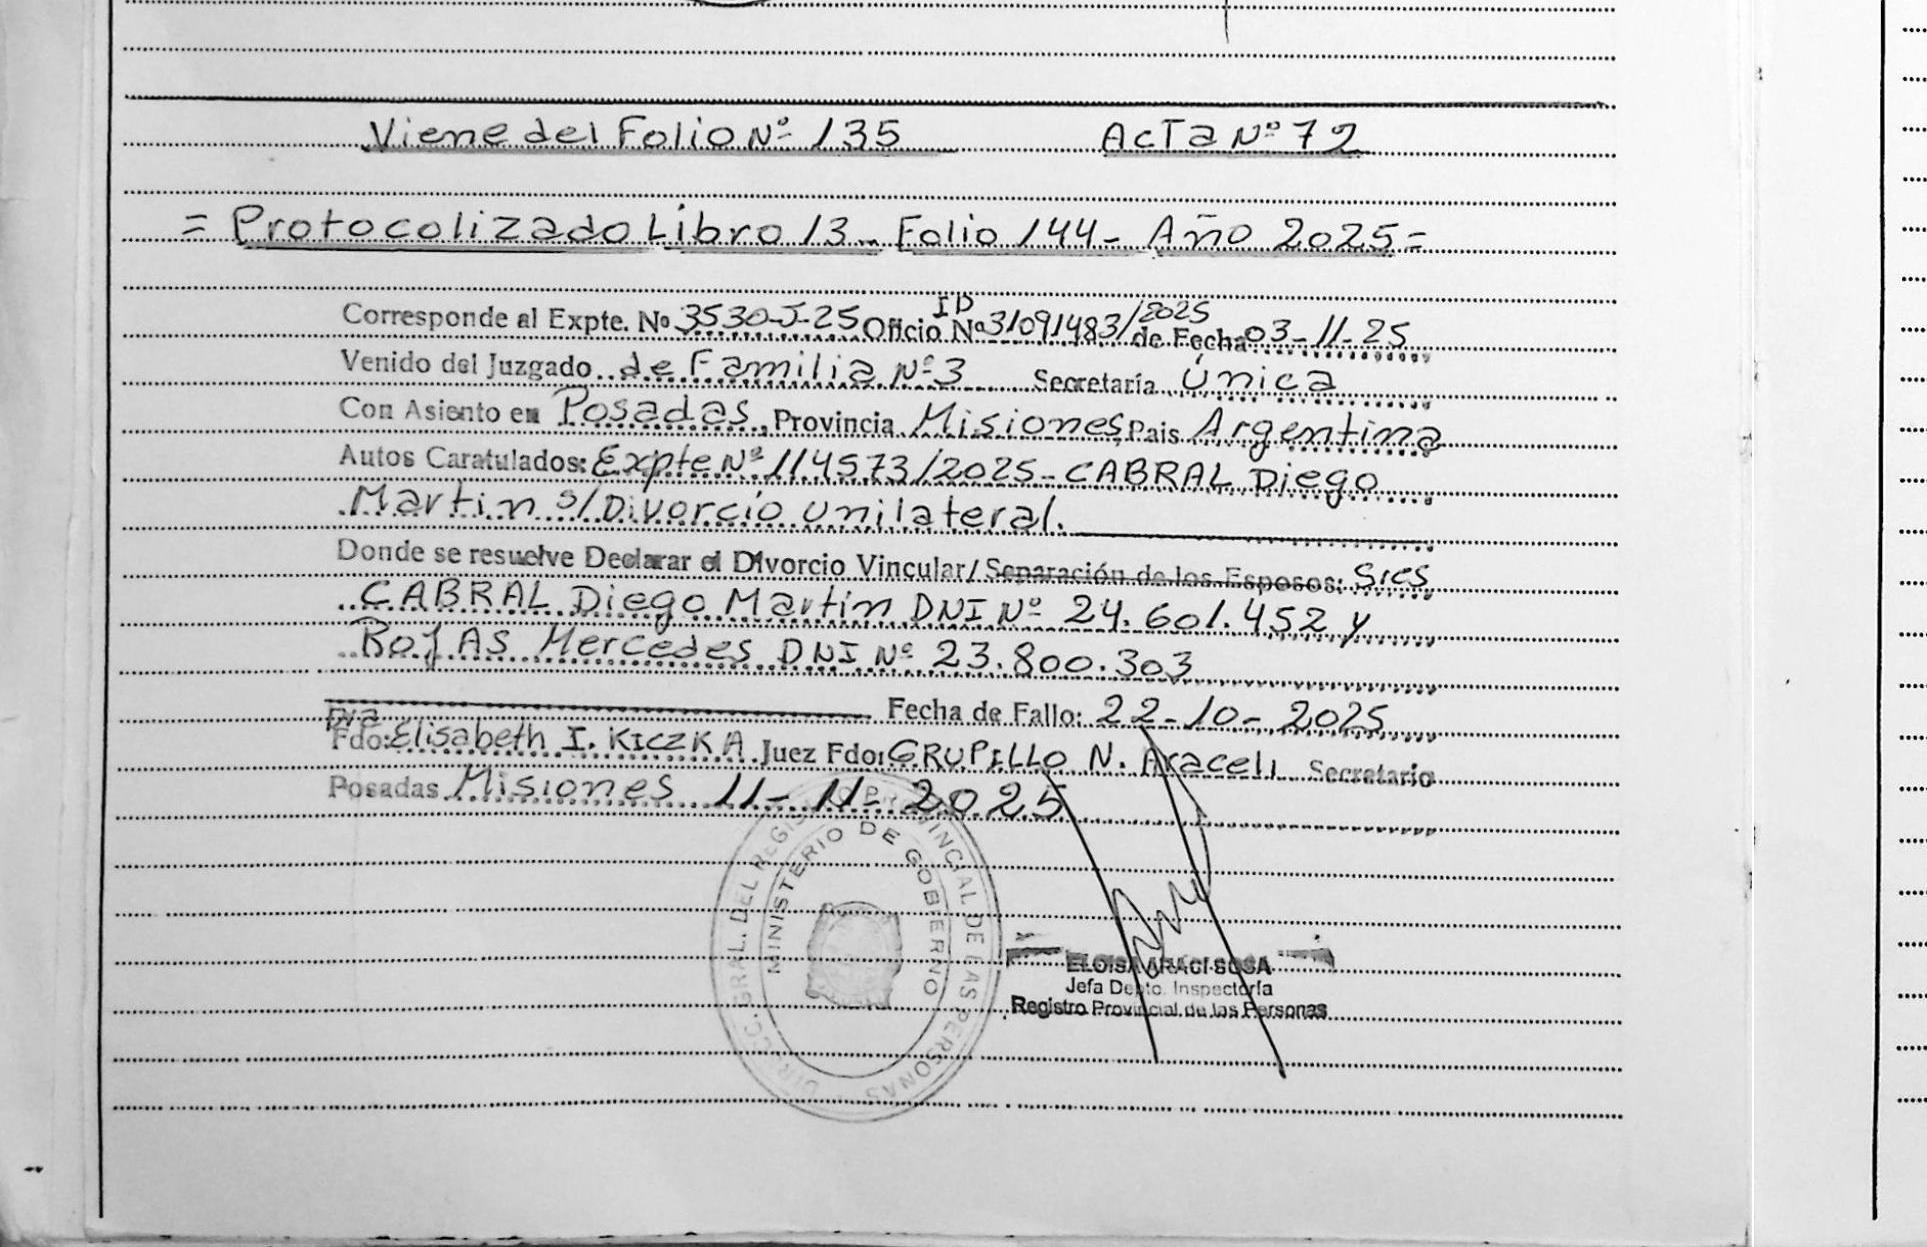 Viene del Folio Nº 135 Acta Nº 72
= Protocolizado Libro 13- Folio 144- Año 2025=
Corresponde al Expte. Nº 3530-J-25 Oficio Nº ID 31091483/2025 de Fecha 03-11-25
Venido del Juzgado de Familia Nº 3 Secretaría Única
Con Asiento en Posadas, Provincia Misiones Pais Argentina
Autos Caratulados: Expte Nº 114573/2025- CABRAL Diego
Martin s/Divorcio Unilateral.
Donde se resuelve Declarar el Divorcio Vincular/ Separación de los Esposos: Sres
CABRAL Diego Martín DNI Nº 24.601.452 y
ROJAS Mercedes DNI Nº 23.800.303
Fecha de Fallo: 22-10-2025
Dra
Fdo: Elisabeth I. KICZKA Juez Fdo: GRUPILLO N. Araceli Secretario
Posadas Misiones 11-11-2025
DIRECC. GRAL. DEL REGISTRO PROVINCIAL DE LAS PERSONAS
MINISTERIO DE GOBIERNO
ELOISA ARACI SOSA
Jefa Depto. Inspectoría
Registro Provincial de las Personas